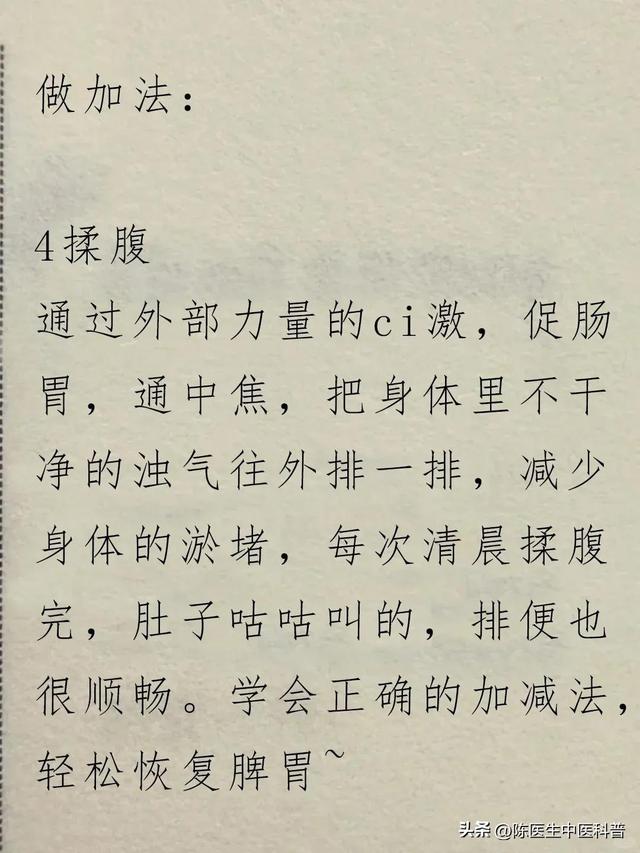 做加法：
4揉腹
通过外部力量的ci激，促肠
胃，通中焦，把身体里不干
净的浊气往外排一排，减少
身体的淤堵，每次清晨揉腹
完，肚子咕咕叫的，排便也
很顺畅。学会正确的加减法，
轻松恢复脾胃~
头条 @陈医生中医科普